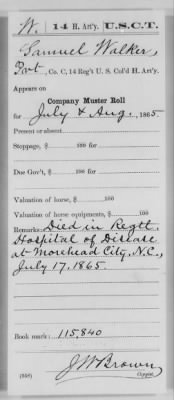 W. | 14 H. Art'y. | U.S.C.T.
Samuel Walker,
Pvt., Co. C, 14 Reg't U. S. Col'd H. Art'y.
Appears on
Company Muster Roll
for July & Aug., 1865
Present or absent
Stoppage, $ 100 for
Due Gov't, $ 100 for
Valuation of horse, $ 100
Valuation of horse equipments, $ 100
Remarks: Died in Regtl.
Hospital of Disease
at Morehead City, N.C.,
July 17, 1865.
Book mark: 115,840
J W Brown
(358) Copyist.